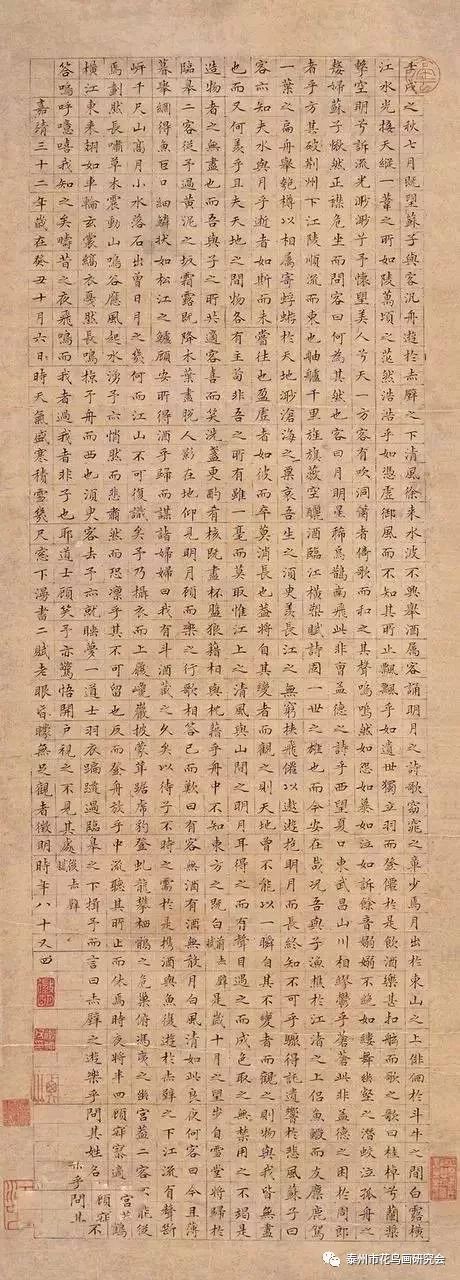 壬戌之秋七月既望蘇子與客汎舟遊於赤壁之下清風徐來水波不興舉酒屬客誦明月之詩歌窈窕之章少焉月出於東山之上徘徊於斗牛之間白露橫
江水光接天縱一葦之所如陵萬頃之茫然浩浩乎如憑虛御風而不知其所止飄飄乎如遺世獨立羽而登僊於是飲酒樂甚扣舷而歌之歌曰桂棹兮蘭槳
擊空明兮泝流光渺渺兮予懷望美人兮天一方客有吹洞簫者倚歌而和之其聲嗚嗚然如怨如慕如泣如訴餘音嫋嫋不絕如縷舞幽壑之潛蛟泣孤舟之
嫠婦蘇子愀然正襟危坐而問客曰何為其然也客曰月明星稀烏鵲南飛此非曹孟德之詩乎西望夏口東武昌山川相繆鬱乎蒼蒼此非孟德之困於周郎
者乎方其破荊州下江陵順流而東也舳艫千里旌旗蔽空釃酒臨江橫槊賦詩固一世之雄也而今安在哉況吾與子漁樵於江渚之上侶魚鰕而友麋鹿駕
一葉之扁舟舉匏樽以相屬寄蜉蝣於天地渺滄海之粟哀吾生之須臾羨長江之無窮挾飛僊以遨遊抱明月而長終知不可乎驟得託遺響於悲風蘇子曰
客亦知夫水與月乎逝者如斯而未嘗往也盈虛者如彼而卒莫消長也蓋將自其變者而觀之則天地曾不能以一瞬自其不變者而觀之則物與我皆無盡
也而又何羨乎且夫天地之間物各有主苟非吾之所有雖一毫而莫取惟江上之清風與山間之明月耳得之而有聲目遇之而成色取之無禁用之不竭是
造物者之無盡也而吾與子之所共適客喜而笑洗盞更酌肴核既盡杯盤狼籍相與枕藉乎舟中不知東方之既白 前赤壁賦 是歲十月之望步自雪堂將歸於
臨皋二客從予過黃泥之坂霜露既降木葉盡脫人影在地仰見明月顧而樂之行歌相答已而歎曰有客無酒有酒無肴月白風清如此良夜何客曰今且薄
暮舉網得魚巨口細鱗狀如松江之鱸顧安所得酒乎歸而謀諸婦婦曰我有斗酒藏之久矣以待子不時之需於是携酒與魚復遊於赤壁之下江流有聲斷
岸千尺山高月小水落石出曾日月之幾何而江山不可復識矣予乃攝衣而上履巉巖披蒙茸踞虎豹登虬龍攀栖鶻之危巢俯馮夷之幽宮蓋二客不能從
焉劃然長嘯草木震動山鳴谷應風起水湧予亦悄然而悲肅然而恐凜乎其不可留也反而登舟放乎中流聽其所止而休焉時夜將半四顧寂寥適
橫江東來翅如車輪玄裳縞衣戛然長鳴掠予舟而西也須臾客去予亦就睡夢一道士羽衣蹁躚過臨皋之下揖予而言曰赤壁之遊樂乎問其姓名不
答嗚呼噫嘻我知之矣疇昔之夜飛鳴而過我者非子也耶道士顧笑予亦驚悟開戶視之不見其處 後赤壁賦
嘉靖三十二年歲在癸丑十月六日時天氣盛寒積雪幾尺窓下漫書二賦老眼眵矇無足觀者徵明時年八十又四
泰州市花鸟画研究会